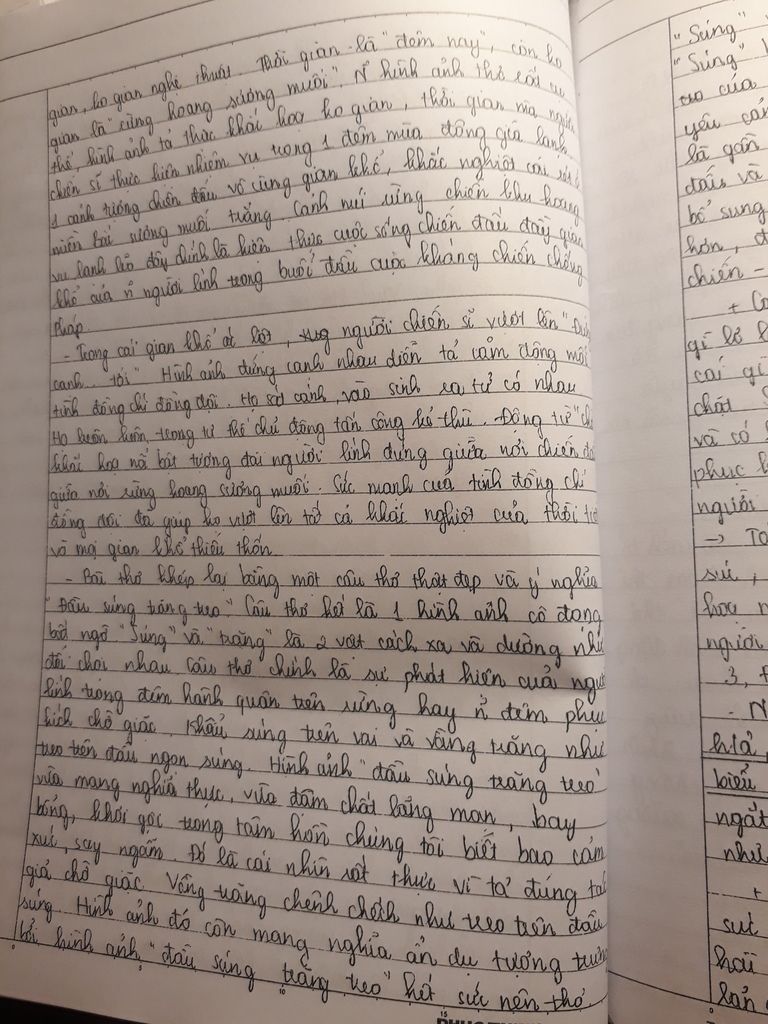 gian, ko gian nghệ thuật. Thời gian là "đêm nay", còn ko
gian là "rừng hoang sương muối". N hình ảnh thơ rất cụ
thể, hình ảnh tả thực khắc hoạ ko gian, thời gian mà người
chiến sĩ thực hiện nhiệm vụ trong 1 đêm mùa đông giá lạnh
1 cảnh tượng chiến đấu vô cùng gian khổ, khắc nghiệt cái rét
miền Bắc sương muối trắng. Cảnh núi rừng chiến khu hoang
vu lạnh lẽo đây chính là hiện thực cuộc sống chiến đấu đầy gian
khổ của n người lính trong buổi đầu cuộc kháng chiến chống
Pháp.
- Trong cái gian khổ ác liệt, người chiến sĩ vượt lên "Đứng
cạnh... tới" Hình ảnh đứng cạnh nhau diễn tả cảm động mối
tình đồng chí đồng đội. Họ sát cánh, vào sinh ra tử có nhau
Họ luôn luôn trong tư thế chủ động tấn công kẻ thù. Động từ "ch
khắc hoạ nổ bật tượng đài người lính đứng giữa nơi chiến đấ
giữa nơi rừng hoang sương muối. Sức mạnh của tình đồng chí
đồng đội đã giúp họ vượt lên tất cả khắc nghiệt của thời tiế
và mọi gian khổ thiếu thốn
- Bài thơ khép lại bằng một câu thơ thật đẹp và ý nghĩa
"Đầu súng trăng treo" Câu thơ kết là 1 hình ảnh cô đọng
bất ngờ "Súng" và "trăng" là 2 vật cách xa và dường như
đối chọi nhau Câu thơ chính là sự phát hiện của ngư
lính trong đêm hành quân trên rừng hay n đêm phục
kích chờ giặc. Khẩu súng trên vai và vầng trăng như
treo trên đầu ngọn súng. Hình ảnh "đầu súng trăng treo"
vừa mang nghĩa thực, vừa đậm chất lãng mạn, bay
bổng, khơi gợi trong tâm hồn chúng tôi biết bao cảm
xúc, say ngắm. Đó là cái nhìn rất thực vì tả đúng
giả chờ giặc. Vầng trăng chênh chếch như treo trên đầu
súng. Hình ảnh đó còn mang nghĩa ẩn dụ tượng trưng
bởi hình ảnh "đầu súng trăng treo" hết sức nên thơ.
"Súng"
"Súng"
của
yếu
là gần
đấu và
bổ sung
hơn, đ
chiến -
+
gì
cái gì
chất
và có
phục
người
→
sức,
hoạ
người
3,
- N
biểu
ngắt
như
+
sức
hai